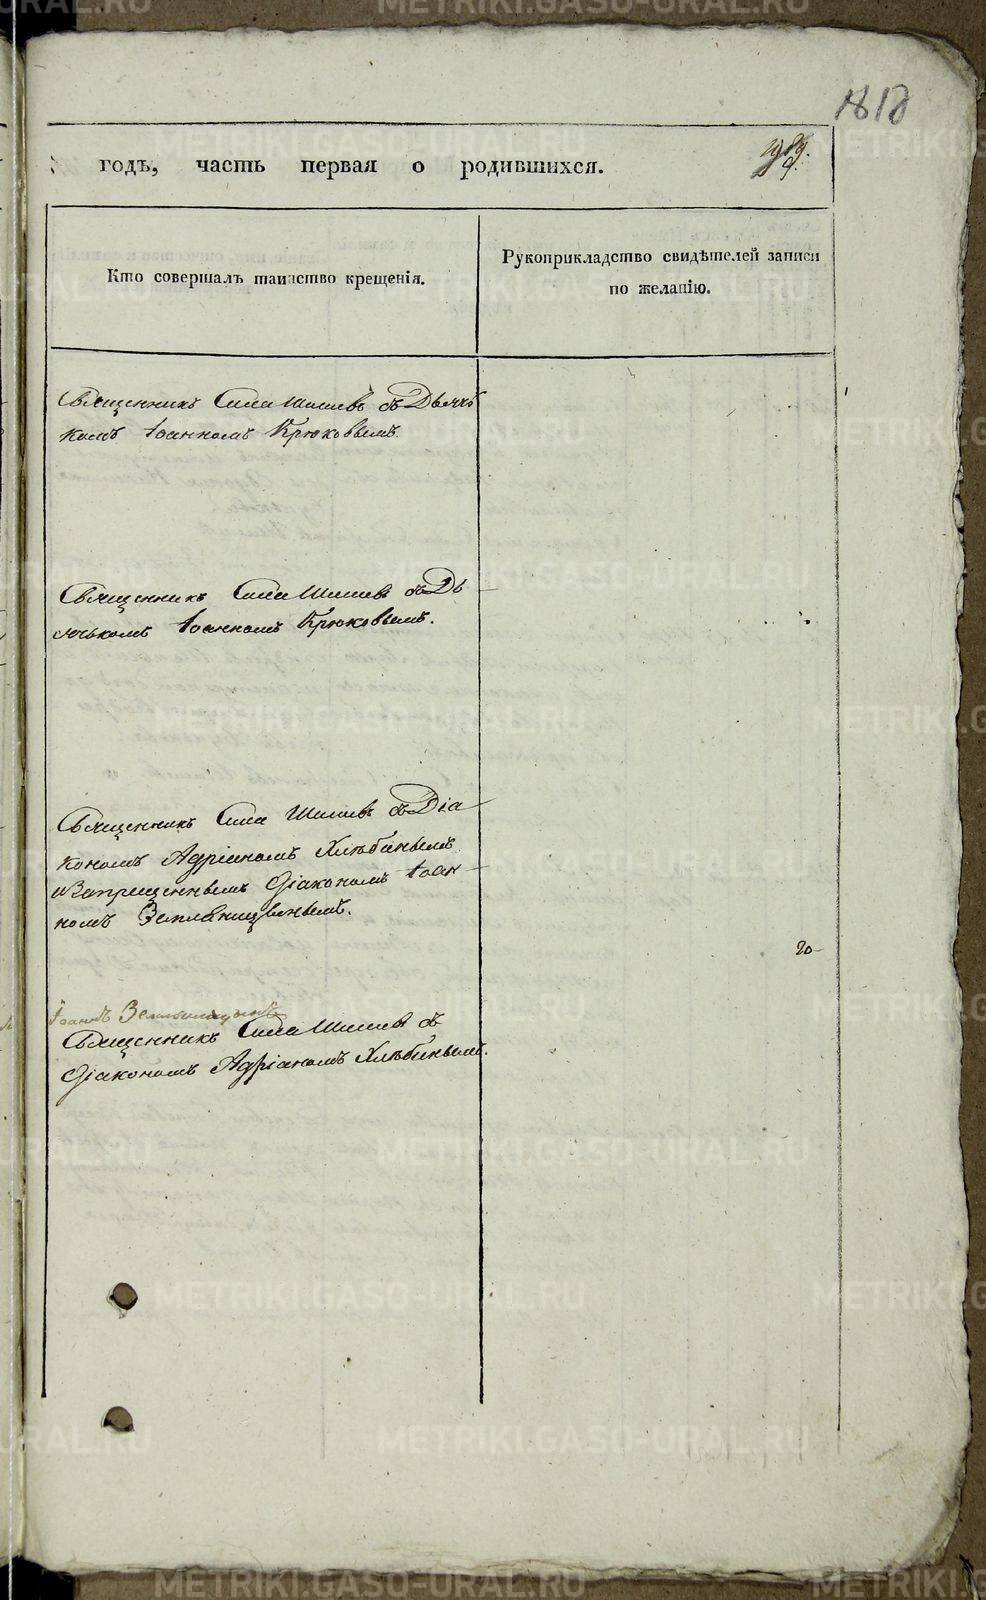 1818
годъ, часть первая о родившихся.
Кто совершалъ таинство крещенія.
Рукоприкладство свидѣтелей записи
по желанію.
Священникъ Сила Шишевъ съ Дьяч
комъ Іоанномъ Крюковымъ.
Священникъ Сила Шишевъ съ Дь
ячькомъ Іоанномъ Крюковымъ.
Священникъ Сила Шишевъ съ Діа
кономъ Адріаномъ Хлѣбинымъ
и Запрещеннымъ Діакономъ Іоан
номъ Земляницынымъ.
20
Іоаннъ Земляницынъ
Священникъ Сила Шишевъ съ
Діакономъ Адріаномъ Хлѣбинымъ.
METRIKI.GASO-URAL.RU